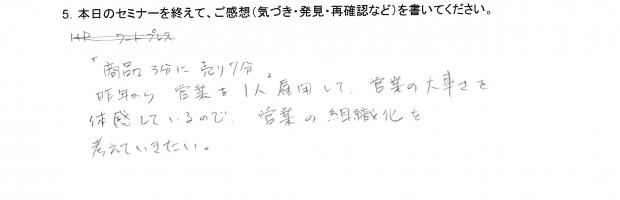 5. 本日のセミナーを終えて、ご感想(気づき・発見・再確認など)を書いてください。
HP ワードプレス
「商品3分に売り7分」
昨年から 営業を1人雇用して、営業の大事さを
体感しているので、営業の組織化を
考えていきたい。